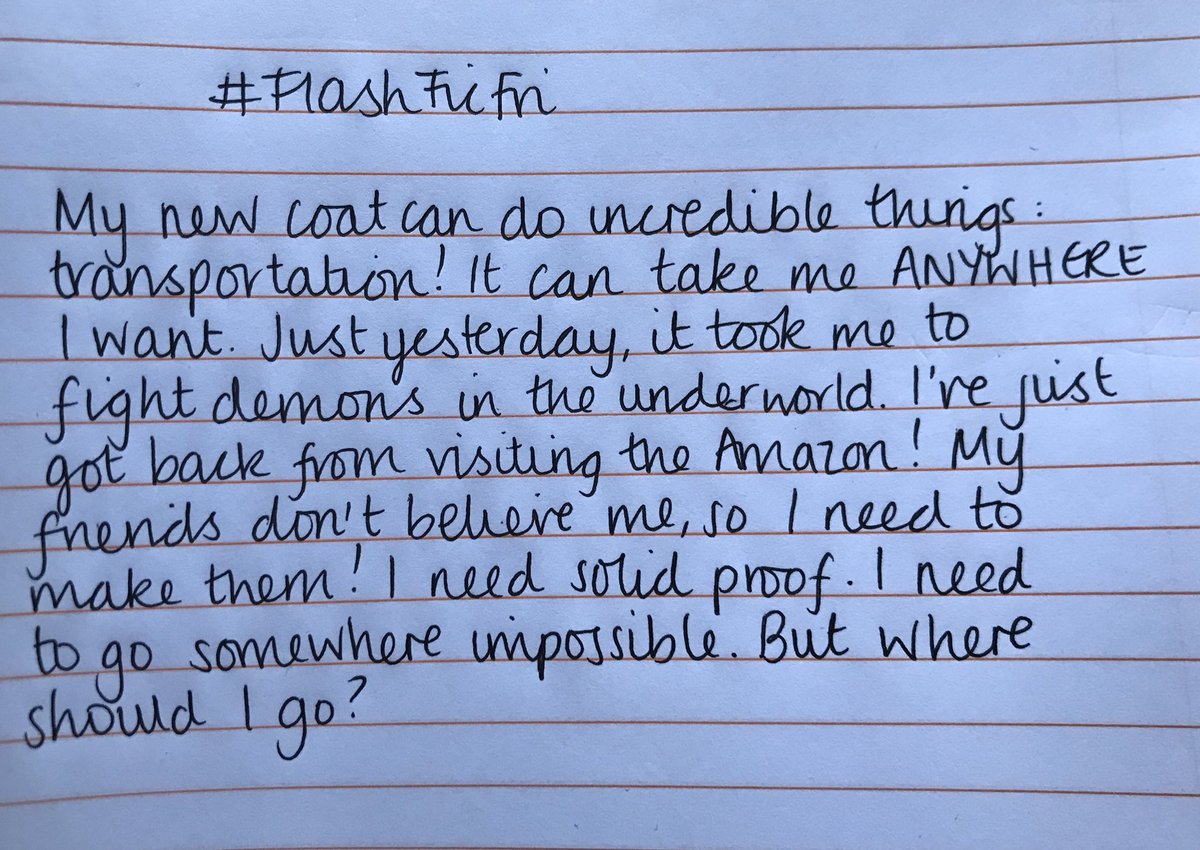 #FlashFicFri
My new coat can do incredible things:
transportation! It can take me ANYWHERE
I want. Just yesterday, it took me to
fight demons in the underworld. I've just
got back from visiting the Amazon! My
friends don't believe me, so I need to
make them! I need solid proof. I need
to go somewhere impossible. But where
should I go?